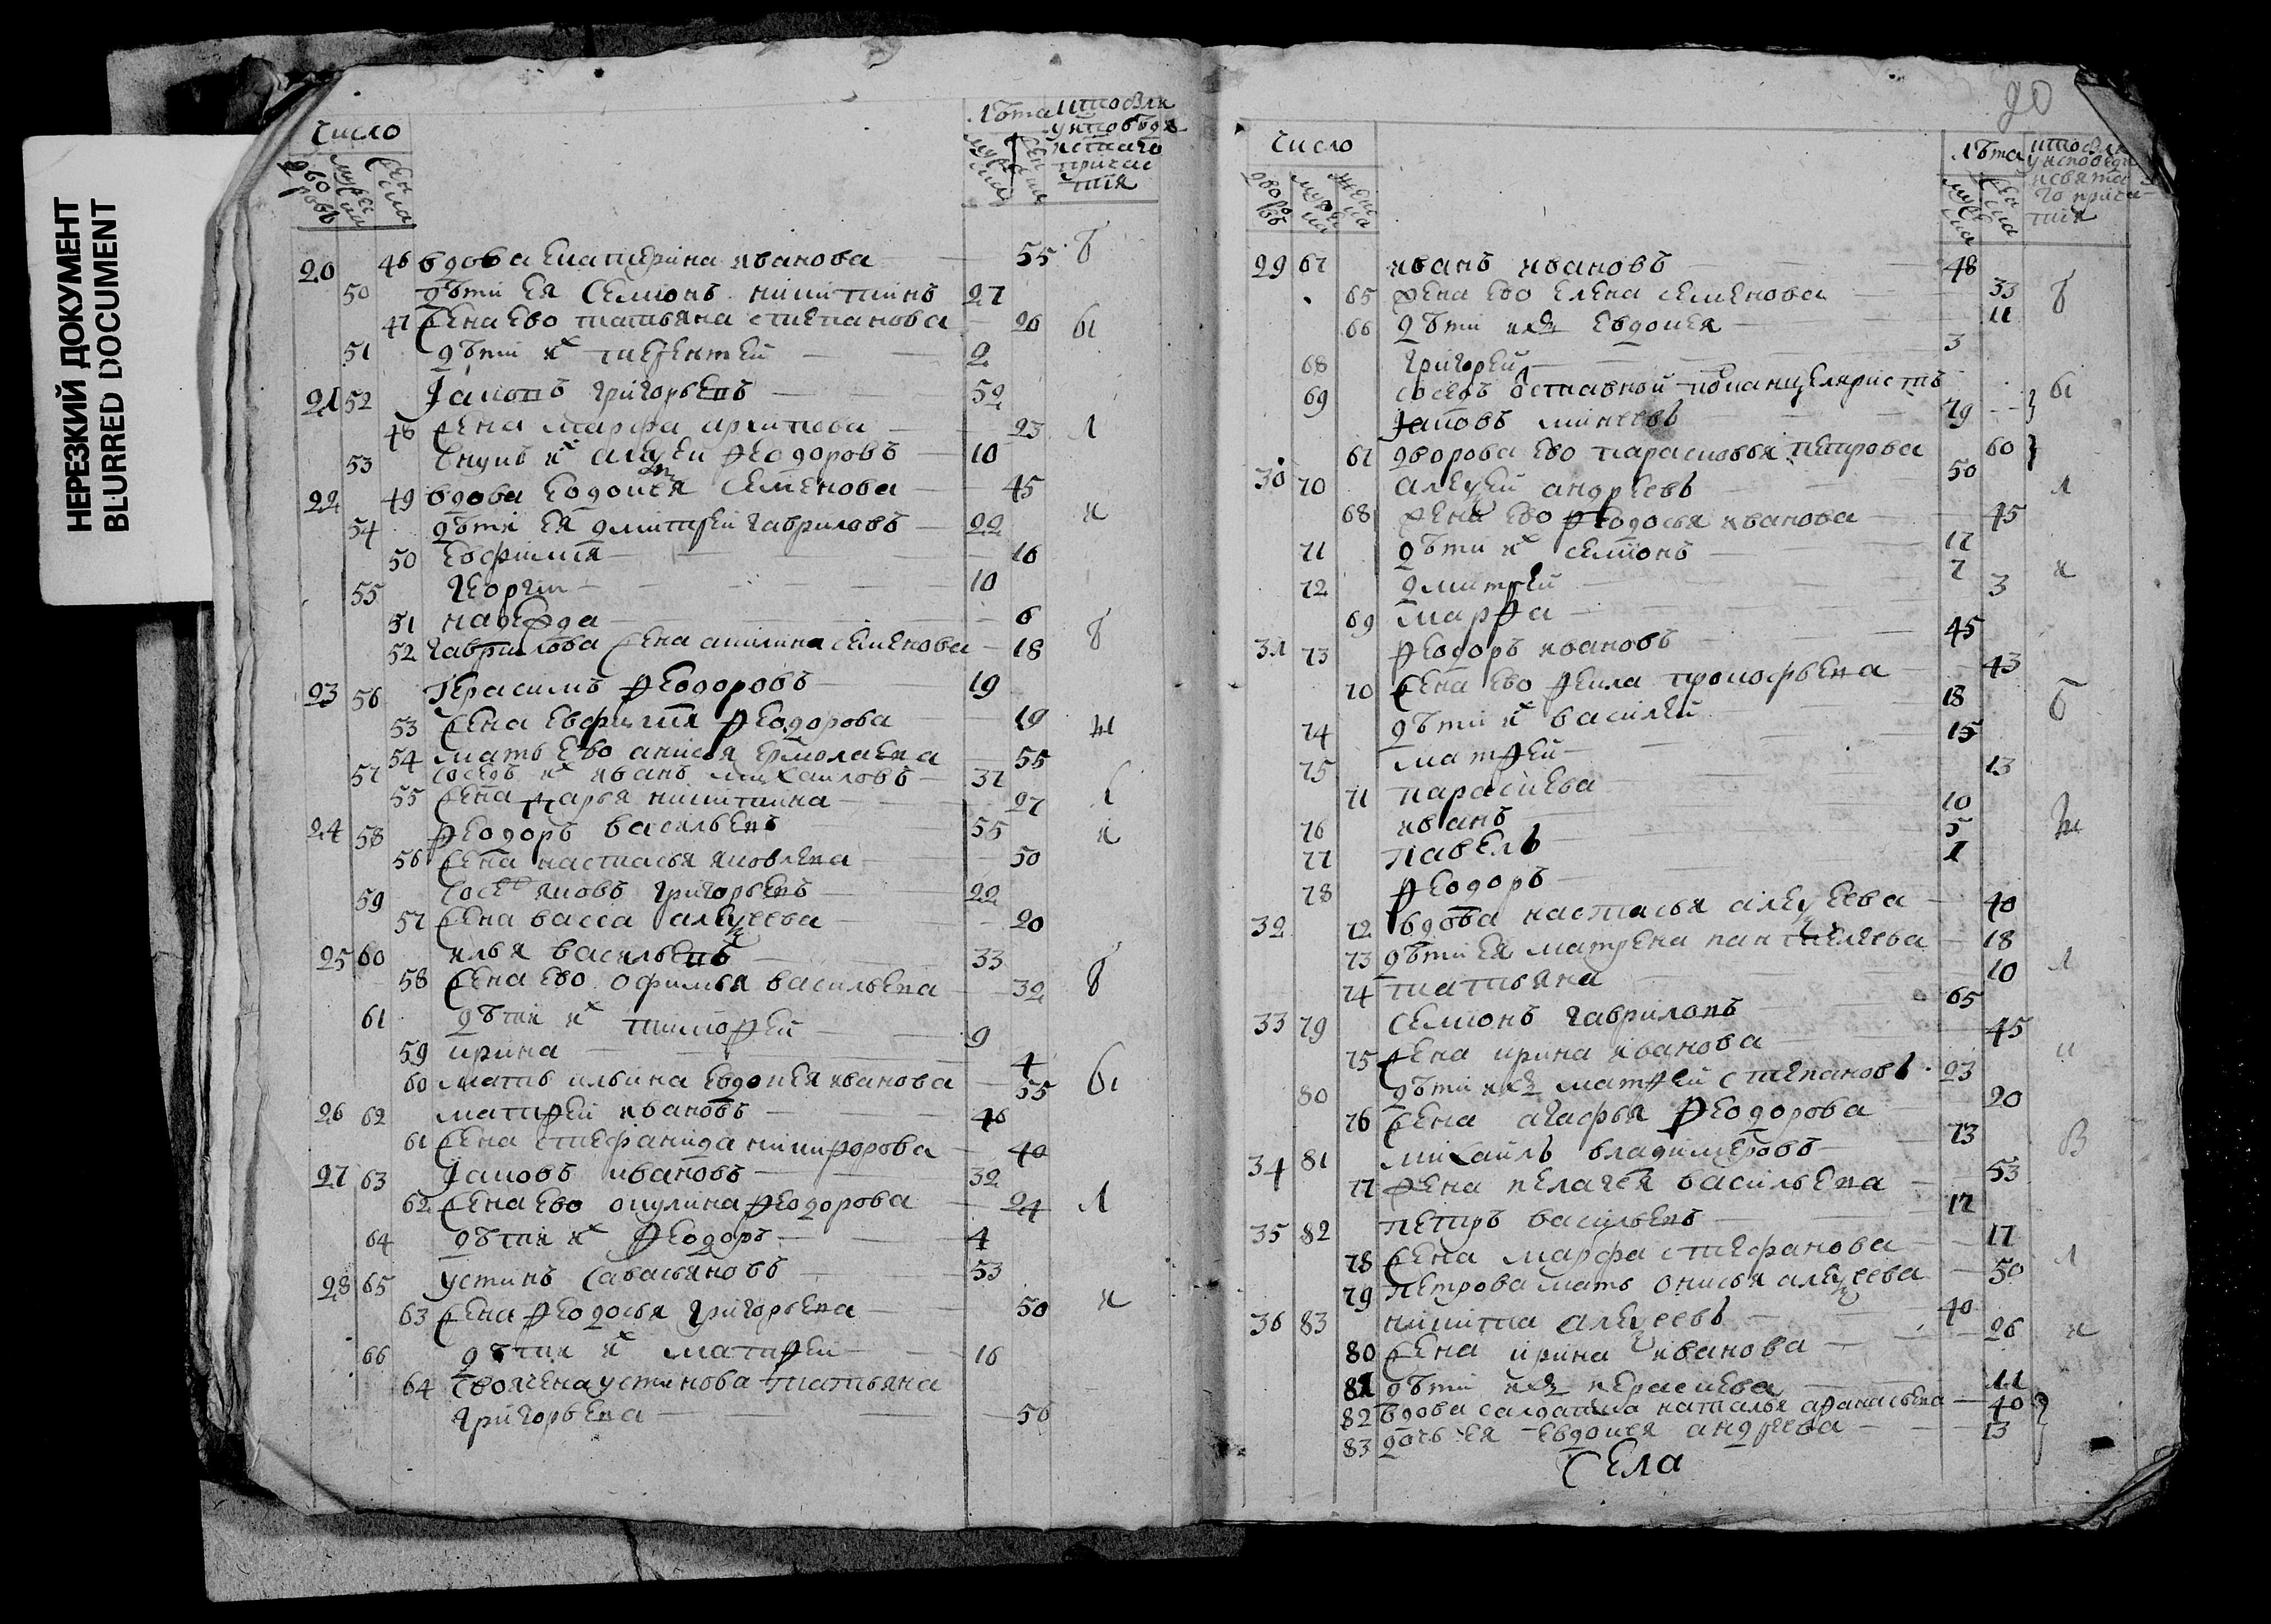 НЕРЕЗКИЙ ДОКУМЕНТ
BLURRED DOCUMENT
число
лѣта
20 46 вдова екатерина иванова 55
50 дѣти ея семионъ никитинъ 27
47 жена ево татьяна степанова 26
51 дѣти их терентей 2
21 52 Iаковъ григорьевъ 52
48 жена марфа архипова 23
53 внукъ их алеѯей ѳеодоровъ 10
22 49 вдова евдокея семенова 45
54 дѣти ея дмитрей гавриловъ 22
50 евфимия 16
55 георги 10
51 надежда 6
52 гаврилова жена акилина семенова 18
23 56 герасимъ ѳеодоровъ 19
53 жена евфимия ѳеодорова 19
54 мать ево анисья ермолаева 55
57 соседъ их иванъ михаиловъ 37
55 жена дарья никитина 27
24 58 ѳеодоръ васильевъ 55
56 жена настасья яковлева 50
59 сосед яковъ григорьевъ 22
57 жена васса алеѯеева 20
25 60 илья васильевъ 33
58 жена ево офимья васильева 32
61 дѣти их тимоѳей 9
59 ирина 4
60 мать ильина евдокея иванова 55
26 62 матѳей ивановъ 46
61 жена стефанида никиѳорова 40
27 63 Iаковъ ивановъ 32
62 жена ево окулина ѳеодорова 24
64 дѣти их ѳеодоръ 4
28 65 устинъ савасьяновъ 53
63 жена ѳеодосья григорьева 50
66 дѣти их матѳей 16
64 своячена устинова татьяна
григорьева 56
90
число
лѣта
29 67 иванъ ивановъ 48
65 жена ево елена семенова 33
66 дѣти их евдокея 11
68 григорей 3
69 соседъ отставной поканцеляристъ
Iаковъ минеевъ 79
67 дворова ево парасковья петрова 60
30 70 алеѯей андреевъ 50
68 жена ево ѳеодосья иванова 45
71 дѣти их семионъ 17
72 дмитрей 7
69 марѳа 3
31 73 ѳеодоръ ивановъ 45
70 жена ево ѳекла прокофьева 43
74 дѣти их василей 18
75 матѳей 15
71 парасkева 13
76 иванъ 10
77 павелъ 5
78 ѳеодоръ 1
32 72 вдова настасья алеѯеева 40
73 дѣти ея матрена пантелеева 18
74 татьяна 10
33 79 семионъ гавриловъ 65
75 жена ирина иванова 45
80 дѣти их матѳей степановъ 23
76 жена агафья ѳеодорова 20
34 81 михаилъ владимеровъ 73
77 жена пелагея васильева 53
35 82 петръ васильевъ 17
78 жена марфа стефанова 17
79 петрова мать онисья алеѯеева 50
36 83 никита алеѯеевъ 40
80 жена ирина иванова 26
81 дѣти их 11
82 вдова салдатка наталья аѳанасьева 40
83 дочь ея евдокея андреева 13
села